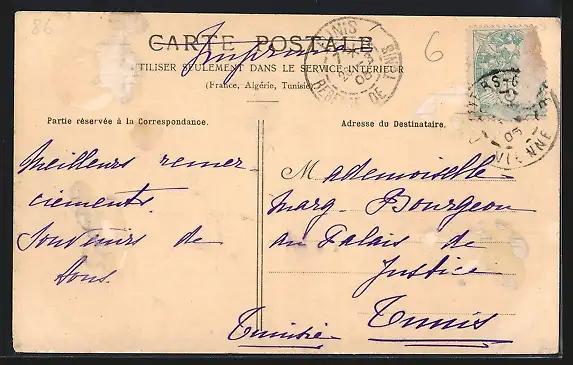 86
CARTE POSTALE
Imprimé
6
UTILISER SEULEMENT DANS LE SERVICE INTÉRIEUR
(France, Algérie, Tunisie)
TUNIS
VIENNE
Partie réservée à la Correspondance.
Adresse du Destinataire.
Meilleurs remer-
ciements.
Souvenirs de
tous.
Mademoiselle
Marg. Bourgeon
au Palais de
Justice
Tunis
Tunisie